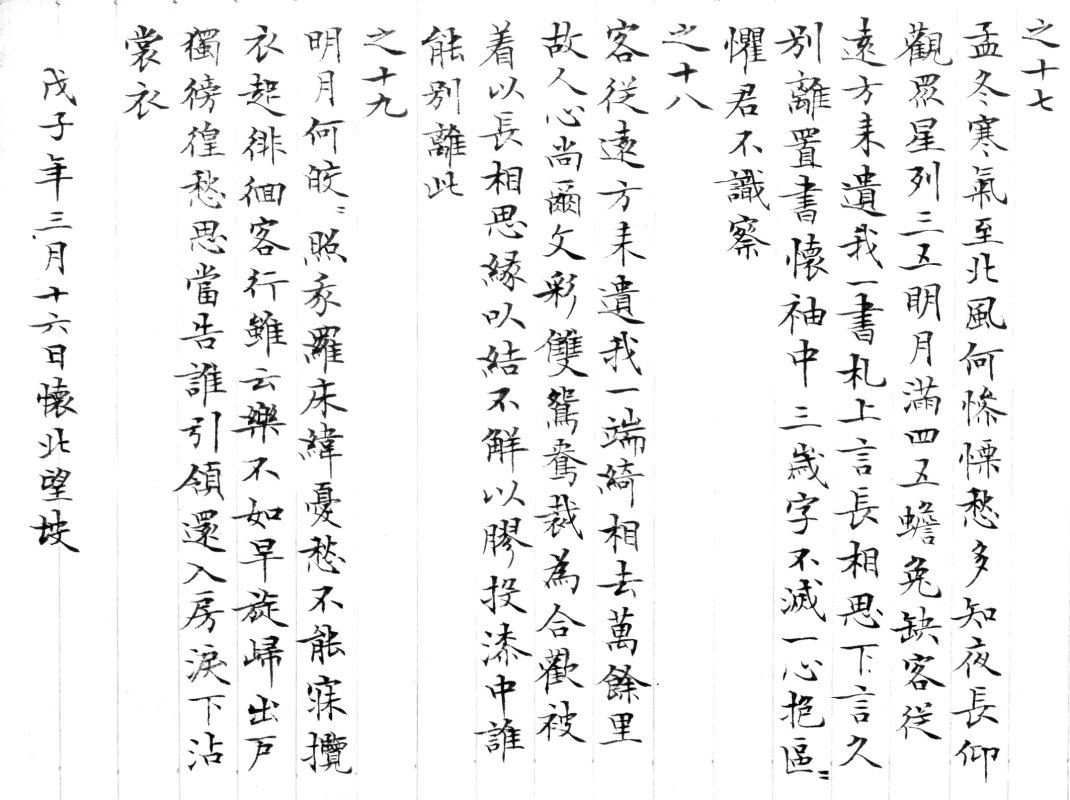 之十七
孟冬寒氣至北風何慘慄愁多知夜長仰
觀眾星列三五明月滿四五蟾兔缺客從
遠方来遺我一書札上言長相思下言久
別離置書懷袖中三歲字不滅一心抱區〻
懼君不識察
之十八
客從遠方来遺我一端綺相去萬餘里
故人心尚爾文彩雙鴛鴦裁為合歡被
着以長相思緣以結不解以膠投漆中誰
能別離此
之十九
明月何皎〻照我羅床緯憂愁不能寐攬
衣起徘徊客行雖云樂不如早旋歸出戶
獨徬徨愁思當告誰引領還入房淚下沾
裳衣
戊子年三月十六日懷北望坡